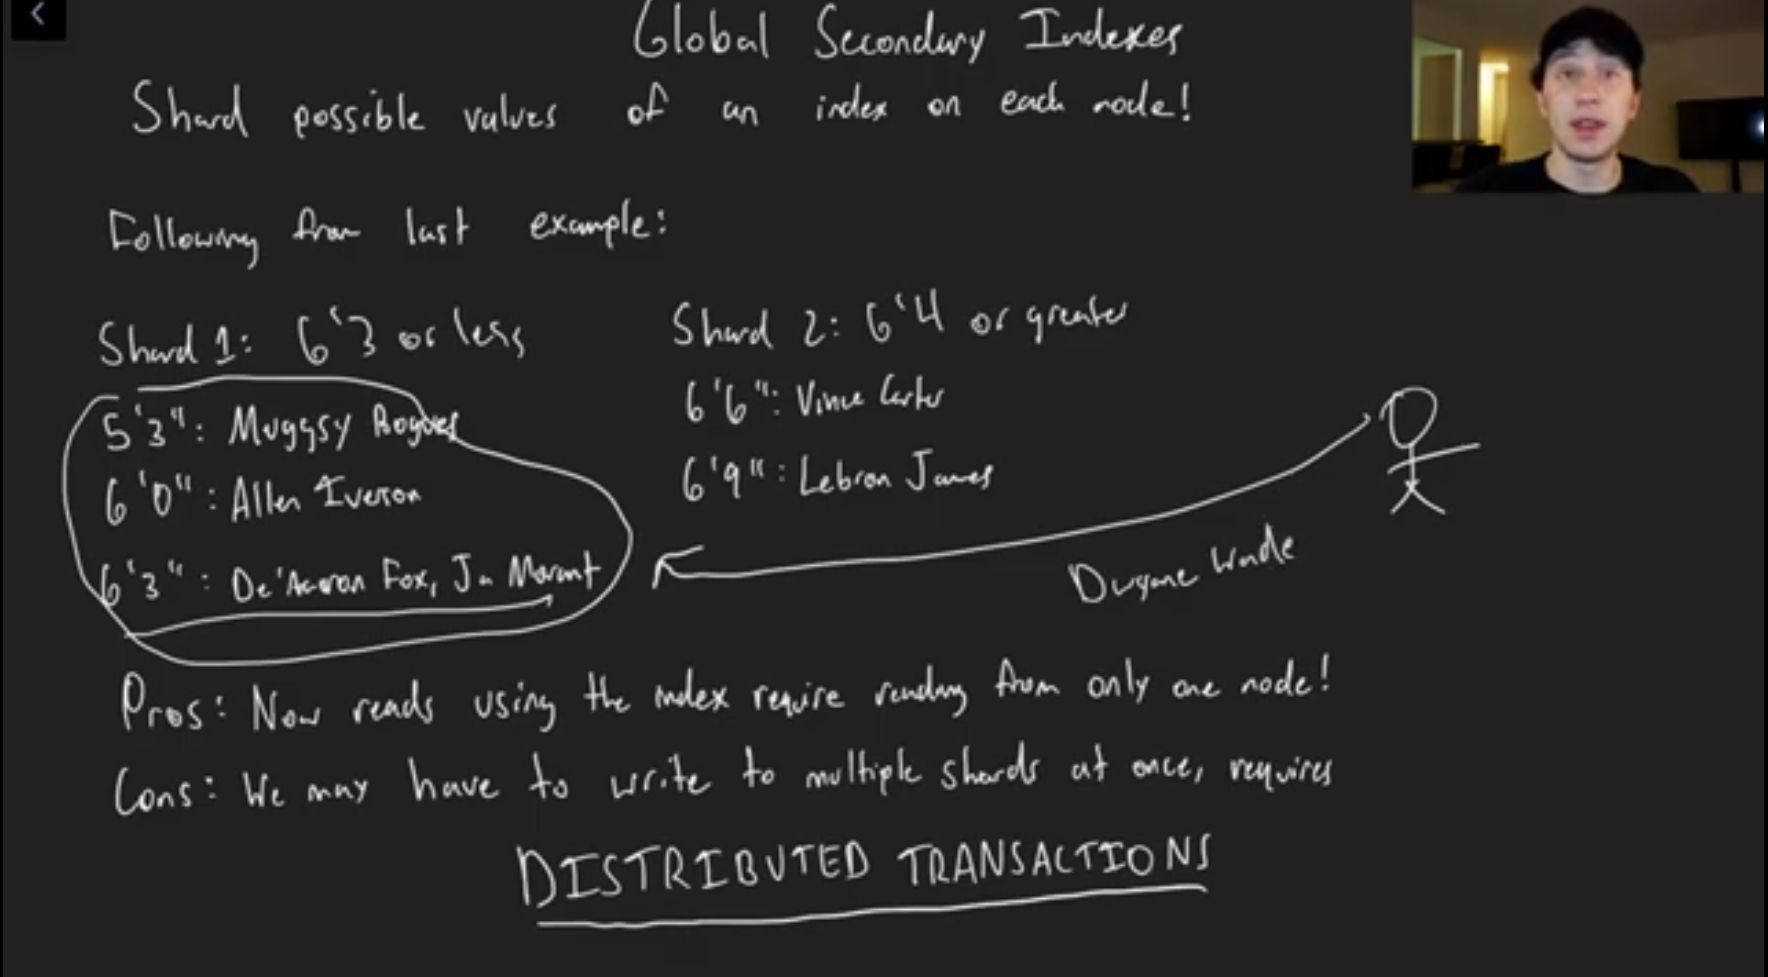 Global Secondary Indexes
Shard possible values of an index on each node!
Following from last example:
Shard 1: 6'3 or less
5'3": Muggsy Bogues
6'0": Allen Iverson
6'3": De'Aaron Fox, Ja Morant
Shard 2: 6'4 or greater
6'6": Vince Carter
6'9": Lebron James
Dwyane Wade
Pros: Now reads using the index require reading from only one node!
Cons: We may have to write to multiple shards at once, requires
DISTRIBUTED TRANSACTIONS